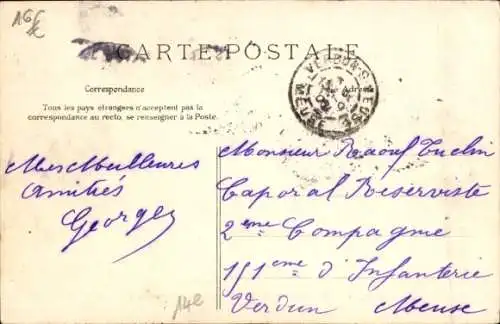 16€
CARTE POSTALE
VERDUN-S-MEUSE
MEUSE
Correspondance
Adresse
Tous les pays étrangers n'acceptent pas la
correspondance au recto, se renseigner à la Poste.
Mes Meilleures
amitiés
Georges
Monsieur Raoul
Caporal Réserviste
2eme Compagnie
151eme d'Infanterie
Verdun Meuse
14e